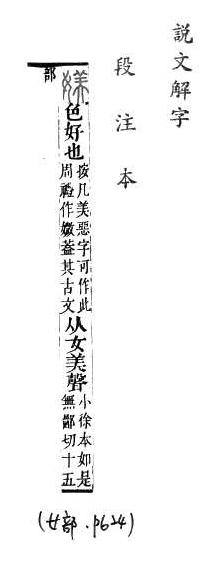 說文解字
段注本
媄 色好也 按凡美惡字可作此周禮作媺葢其古文 从女美聲 小徐本如是無鄙切十五
部
(女部.P624)